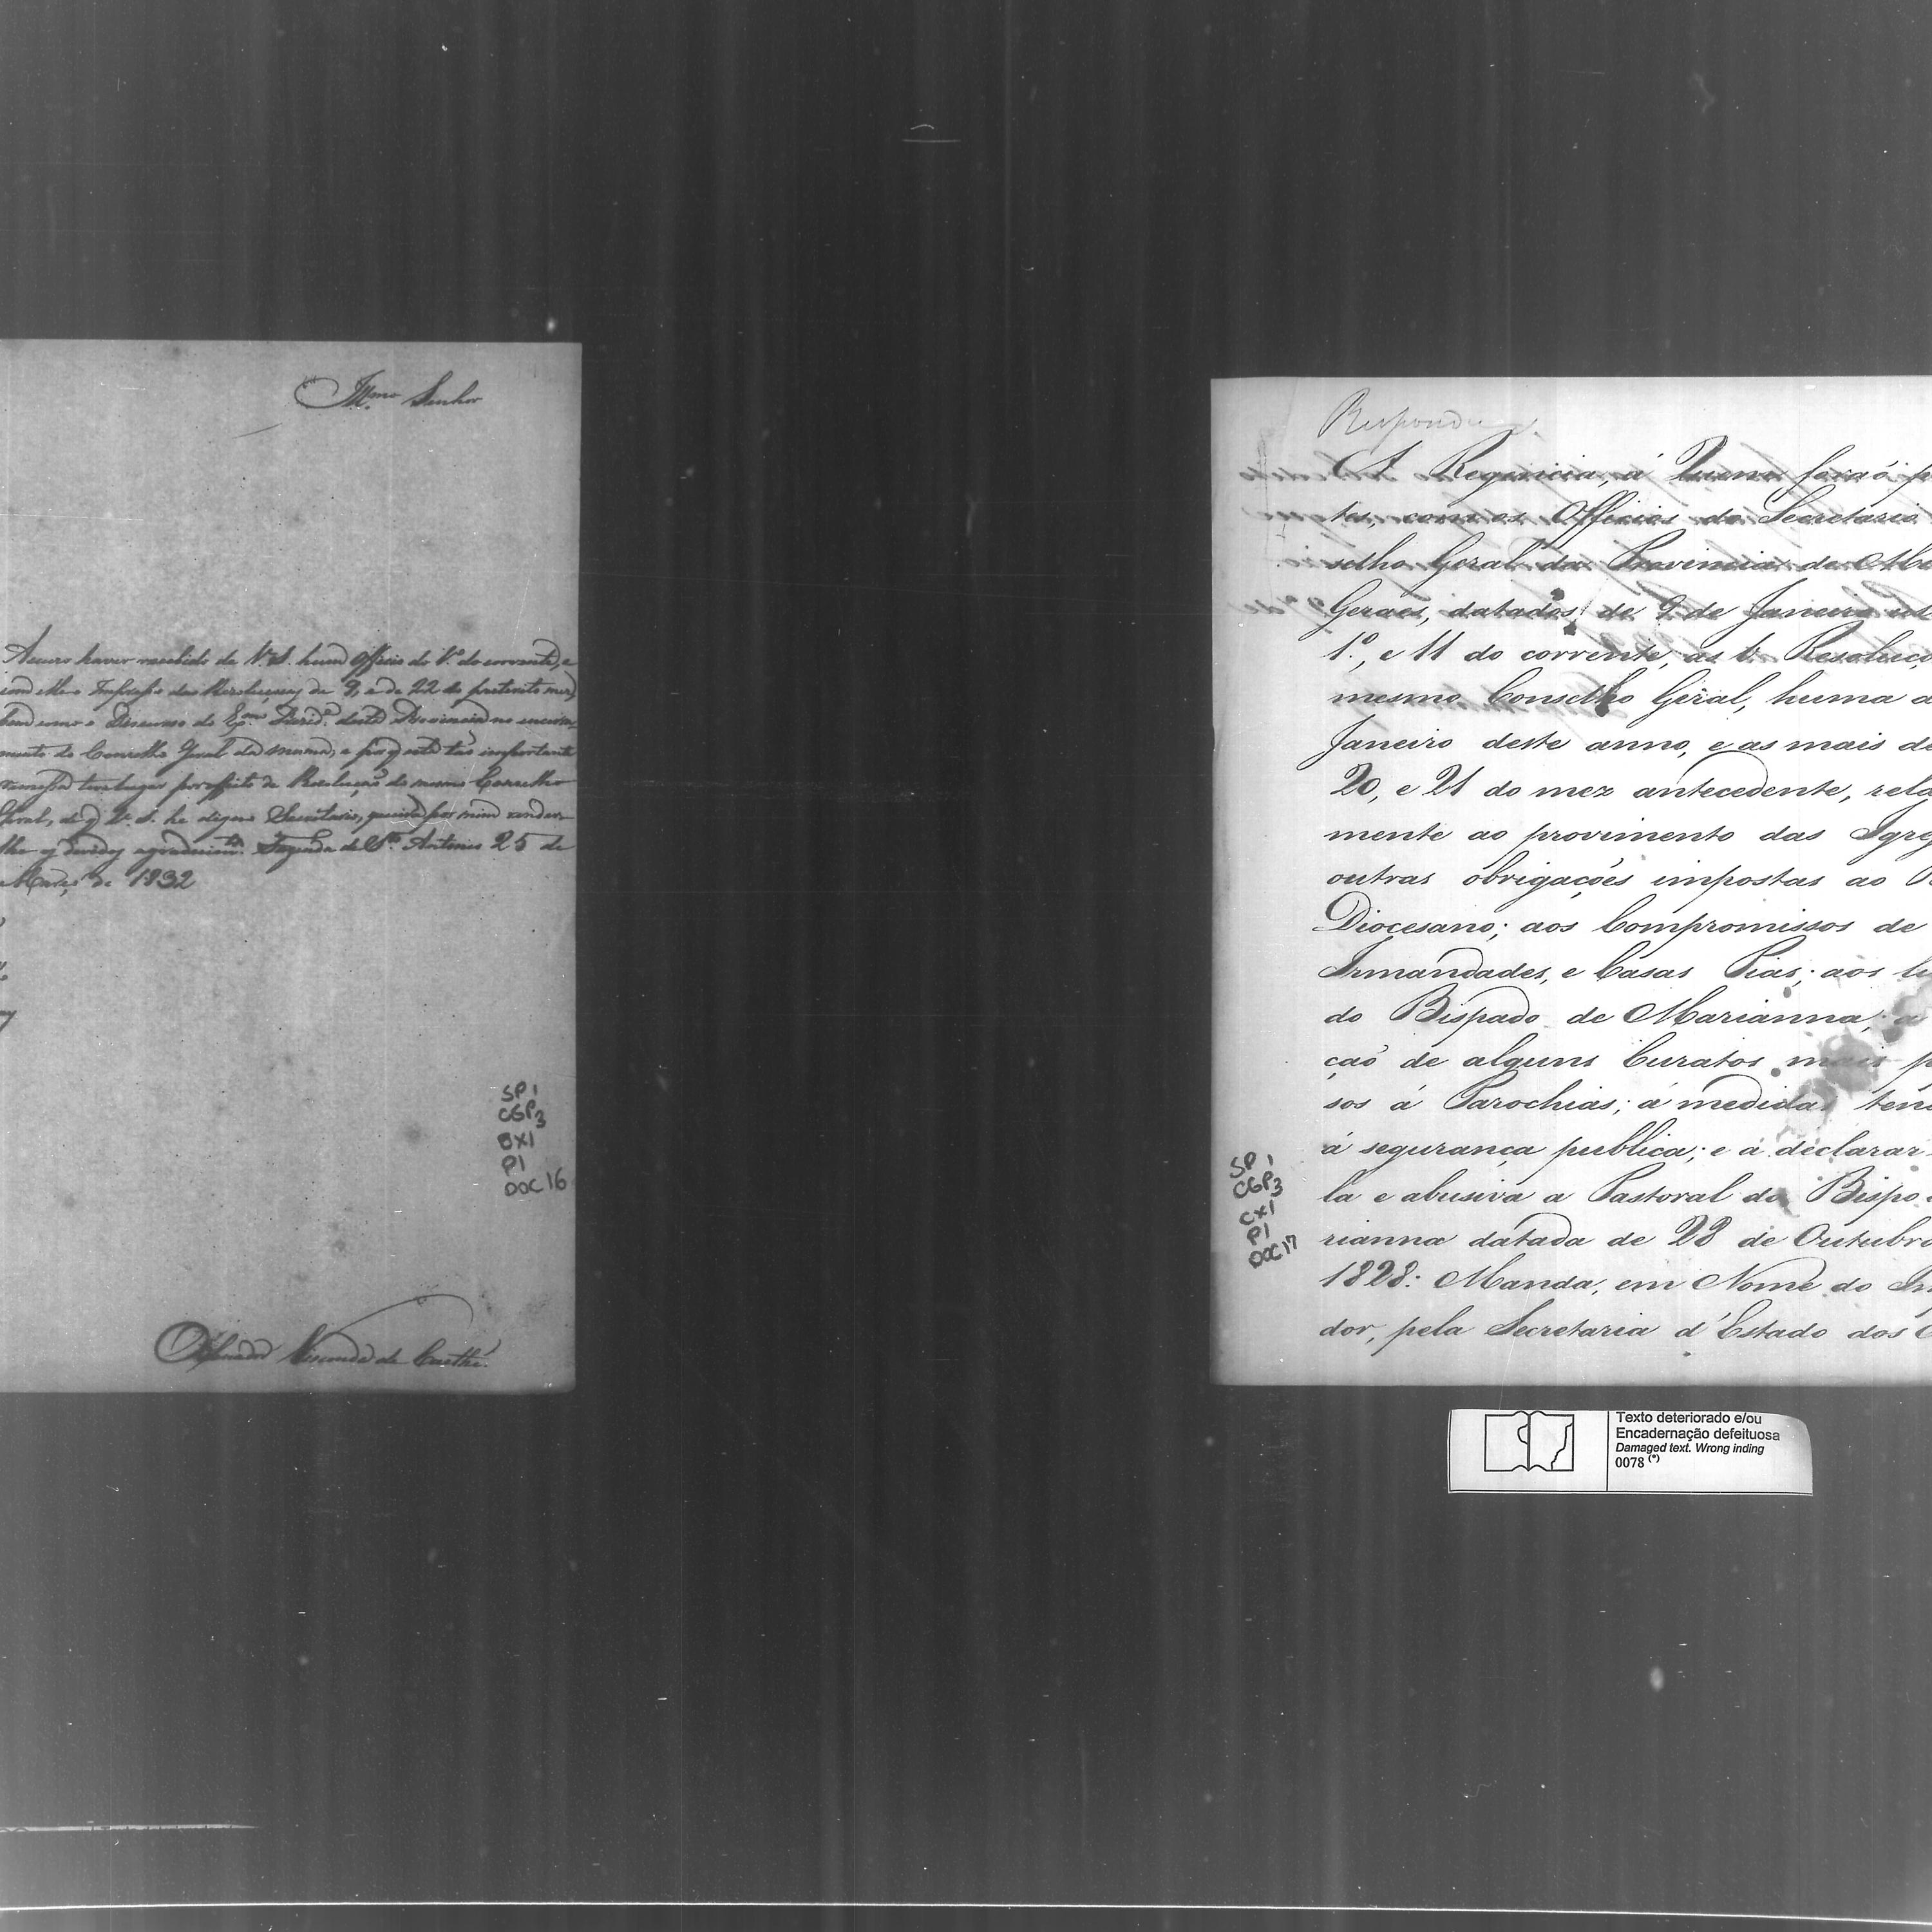 Illmo. Senhor
Accuzo haver recebido de V. S. hum Officio do 1.º do corrente, e
com elle o Impresso das Resoluçoens de 9, e de 22 do preterito mez,
bem como o Discurso do Exmo. Prezide. desta Provincia no encerra-
mento do Conselho Geral da mesma, e porq esta tão importante
remessa teve lugar por effeito de Resolução do mesmo Conselho
Geral, de q V. S. he digno Secretario, queira por mim render-
lhe os devidos agradecimtos. Fazenda de Sto. Antonio 25 de
Março de 1832
SP 1
CGP3
BX1
P1
DOC 16
Visconde de Caethé.
Responde
A Regencia, á Quem foraõ p
tes, com os Officios do Secretario
selho Geral da Provincia de Mi
Geraes, datados de 9 de Janeiro
1.º, e 11 do corrente, as Resoluço
mesmo Conselho Geral, huma d
Janeiro deste anno, e as mais de
20, e 21 do mez antecedente, rela
mente ao provimento das Igre
outras obrigações impostas ao
Diocesano; aos Compromissos de
Irmandades, e Casas Pias; aos
do Bispado de Marianna; a
çaõ de alguns Curatos mais p
sos á Parochias; á medidas ten
á segurança publica; e a declarar
la e abusiva a Pastoral do Bispo
rianna datada de 28 de Outubro
1828: Manda, em Nome do Im
dor, pela Secretaria d'Estado dos
SP 1
CGP3
CX1
P1
DOC 17
Texto deteriorado e/ou
Encadernação defeituosa
Damaged text. Wrong inding
0078 (*)